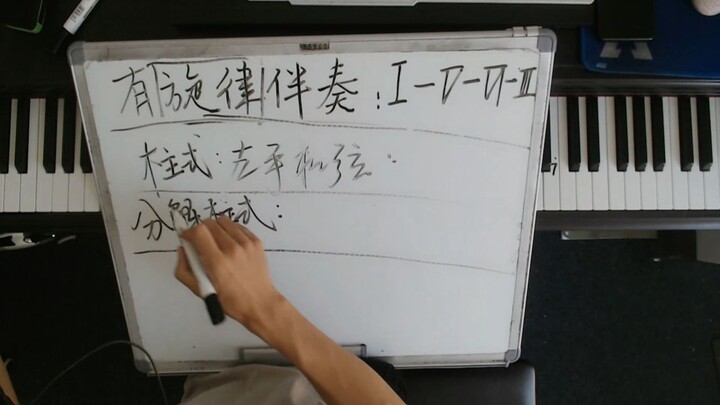 有旋律伴奏：I－V－VI－III
柱式：左手和弦：
分解柱式：